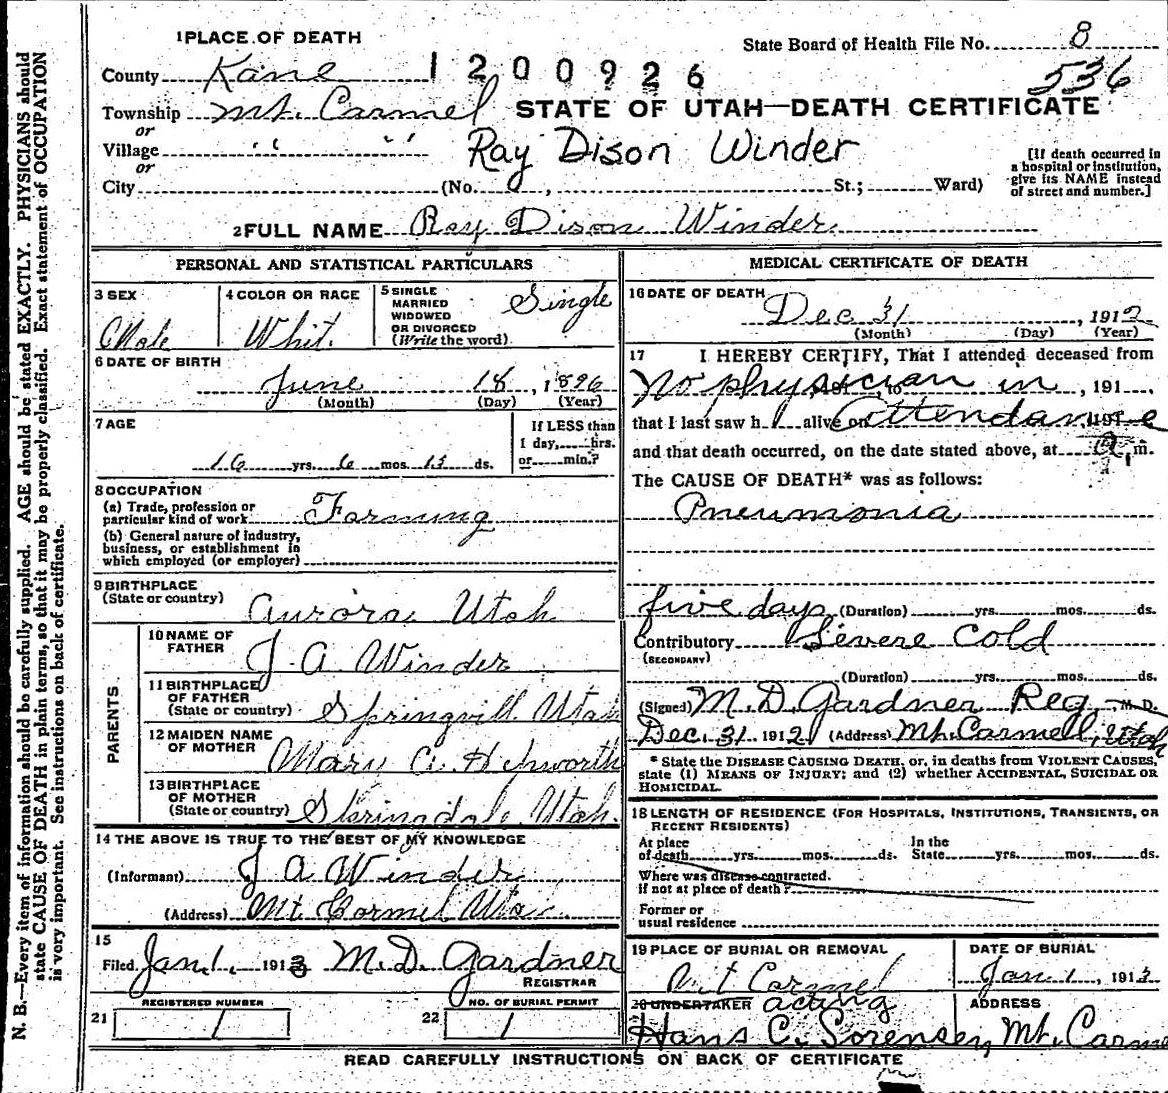 1 PLACE OF DEATH
State Board of Health File No. 8
County Kane 1200926
536
Township Mt. Carmel
STATE OF UTAH—DEATH CERTIFICATE
or
Village " "
Ray Dison Winder
or
City (No. , St.; Ward)
[If death occurred in a hospital or institution, give its NAME instead of street and number.]
2 FULL NAME Ray Dison Winder
PERSONAL AND STATISTICAL PARTICULARS
3 SEX
Male
4 COLOR OR RACE
Whit.
5 SINGLE
MARRIED
WIDOWED
OR DIVORCED
(Write the word)
Single
6 DATE OF BIRTH
June 18, 1896
(Month) (Day) (Year)
7 AGE
16 yrs. 6 mos. 13 ds.
If LESS than
1 day, hrs.
or min.?
8 OCCUPATION
(a) Trade, profession or
particular kind of work Farming
(b) General nature of industry,
business, or establishment in
which employed (or employer)
9 BIRTHPLACE
(State or country)
Aurora Utah
PARENTS
10 NAME OF
FATHER
J. A Winder
11 BIRTHPLACE
OF FATHER
(State or country) Springvill Utah
12 MAIDEN NAME
OF MOTHER Mary A. Hepworth
13 BIRTHPLACE
OF MOTHER
(State or country) Springdale Utah.
14 THE ABOVE IS TRUE TO THE BEST OF MY KNOWLEDGE
(Informant) J A Winder
(Address) Mt Carmel Uta
15
Filed Jan 1, 1913 M. D. Gardner
REGISTRAR
REGISTERED NUMBER
21 1
NO. OF BURIAL PERMIT
22 1
MEDICAL CERTIFICATE OF DEATH
16 DATE OF DEATH
Dec 31, 1912
(Month) (Day) (Year)
17 I HEREBY CERTIFY, That I attended deceased from
No physician in , 191
that I last saw h alive on attendance
and that death occurred, on the date stated above, at m.
The CAUSE OF DEATH* was as follows:
Pneumonia
five days (Duration) yrs. mos. ds.
Contributory Severe Cold
(SECONDARY)
(Duration) yrs. mos. ds.
(Signed) M. D. Gardner Reg. M. D.
Dec. 31 1912 (Address) Mt. Carmel, Utah
* State the DISEASE CAUSING DEATH, or, in deaths from VIOLENT CAUSES,
state (1) MEANS OF INJURY; and (2) whether ACCIDENTAL, SUICIDAL OR
HOMICIDAL.
18 LENGTH OF RESIDENCE (FOR HOSPITALS, INSTITUTIONS, TRANSIENTS, OR
RECENT RESIDENTS)
At place
of death yrs. mos. ds.
In the
State yrs. mos. ds.
Where was disease contracted,
if not at place of death?
Former or
usual residence
19 PLACE OF BURIAL OR REMOVAL
Mt Carmel
DATE OF BURIAL
Jan 1, 1913
20 UNDERTAKER acting
ADDRESS
Hans C. Sorensen, Mt. Carme
READ CAREFULLY INSTRUCTIONS ON BACK OF CERTIFICATE
N. B.—Every item of information should be carefully supplied. AGE should be stated EXACTLY. PHYSICIANS should
state CAUSE OF DEATH in plain terms, so that it may be properly classified. Exact statement of OCCUPATION
is very important. See instructions on back of certificate.